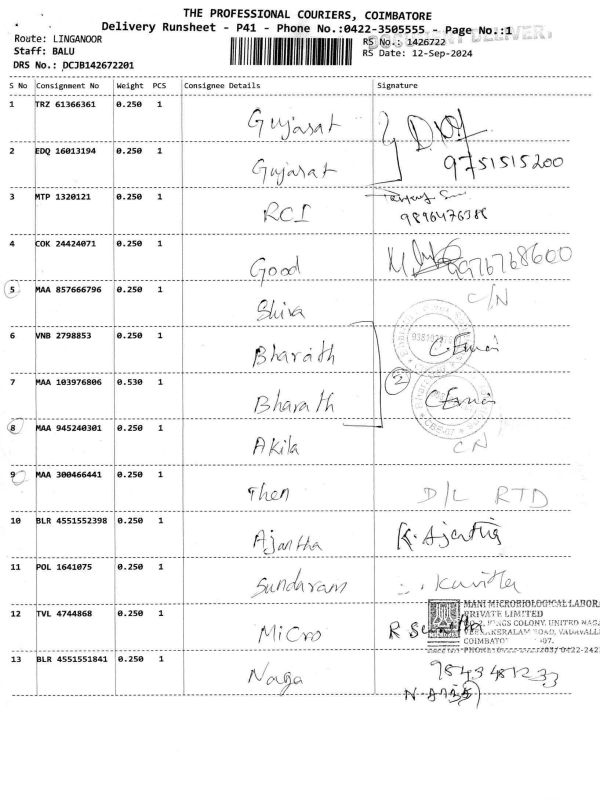 THE PROFESSIONAL COURIERS, COIMBATORE
Delivery Runsheet - P41 - Phone No.:0422-3505555 - Page No.:1
Route: LINGANOOR
RS No.: 1426722
Staff: BALU
RS Date: 12-Sep-2024
DRS No.: DCJB142672201
S No Consignment No Weight PCS Consignee Details Signature
1 TRZ 61366361 0.250 1 Gujarat
2 EDQ 16013194 0.250 1 Gujarat 9751515200
3 MTP 1320121 0.250 1 RCI 9896476386
4 COK 24424071 0.250 1 Good 9976768600
5 MAA 857666796 0.250 1 Shiva C/N
6 VNB 2798853 0.250 1 Bharath
7 MAA 103976806 0.530 1 Bharath 2
8 MAA 945240301 0.250 1 Akila CN
9 MAA 300466441 0.250 1 Then D/L RTD
10 BLR 4551552398 0.250 1 Ajantha K. Ajantha
11 POL 1641075 0.250 1 Sundaram Kavitha
12 TVL 4744868 0.250 1 Micro R
MANI MICROBIOLOGICAL LABOR
PRIVATE LIMITED
COLONY, UNITED NAG
ROAD, VADAVALL
13 BLR 4551551841 0.250 1 Naga 9843481233